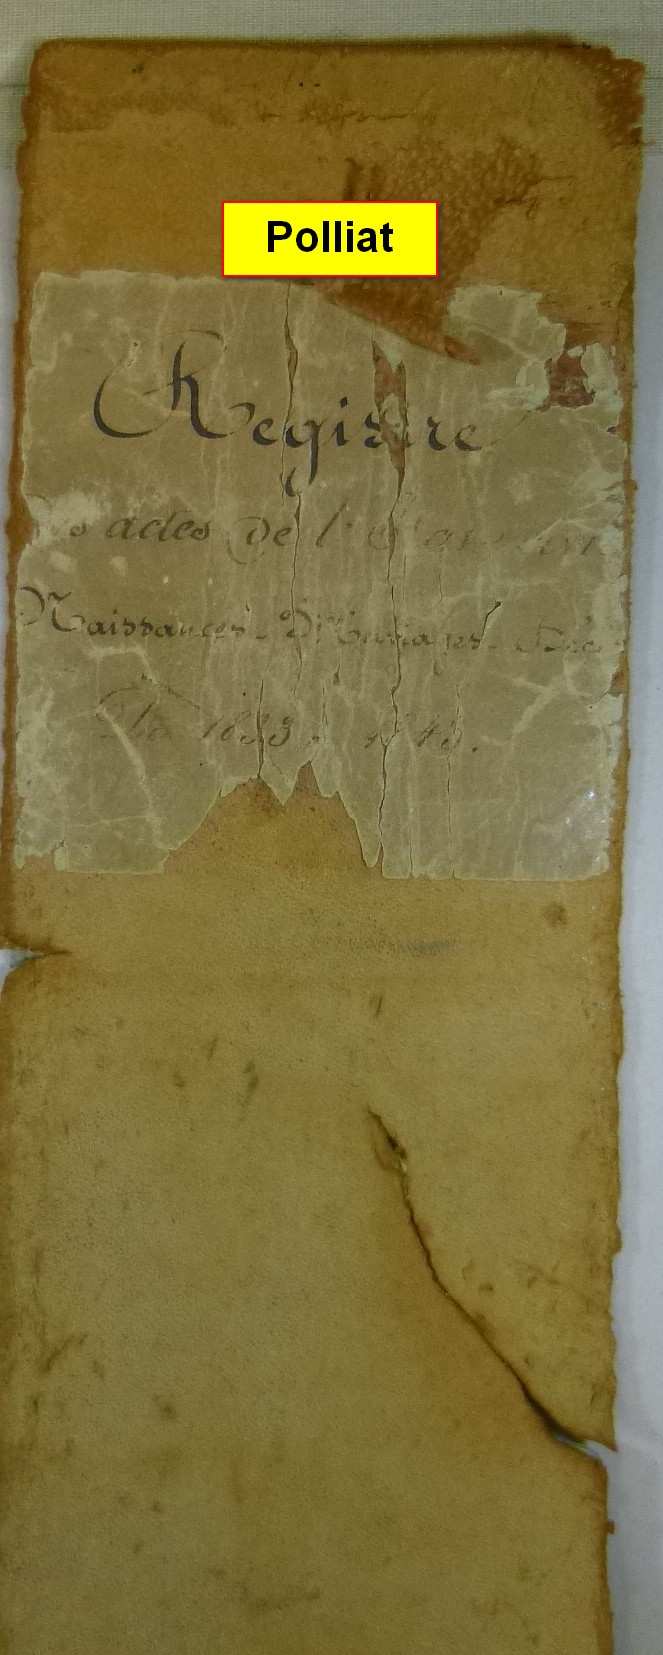 Polliat
Registre
actes de l'
Naissances. Mariages.
1833 à 1843.